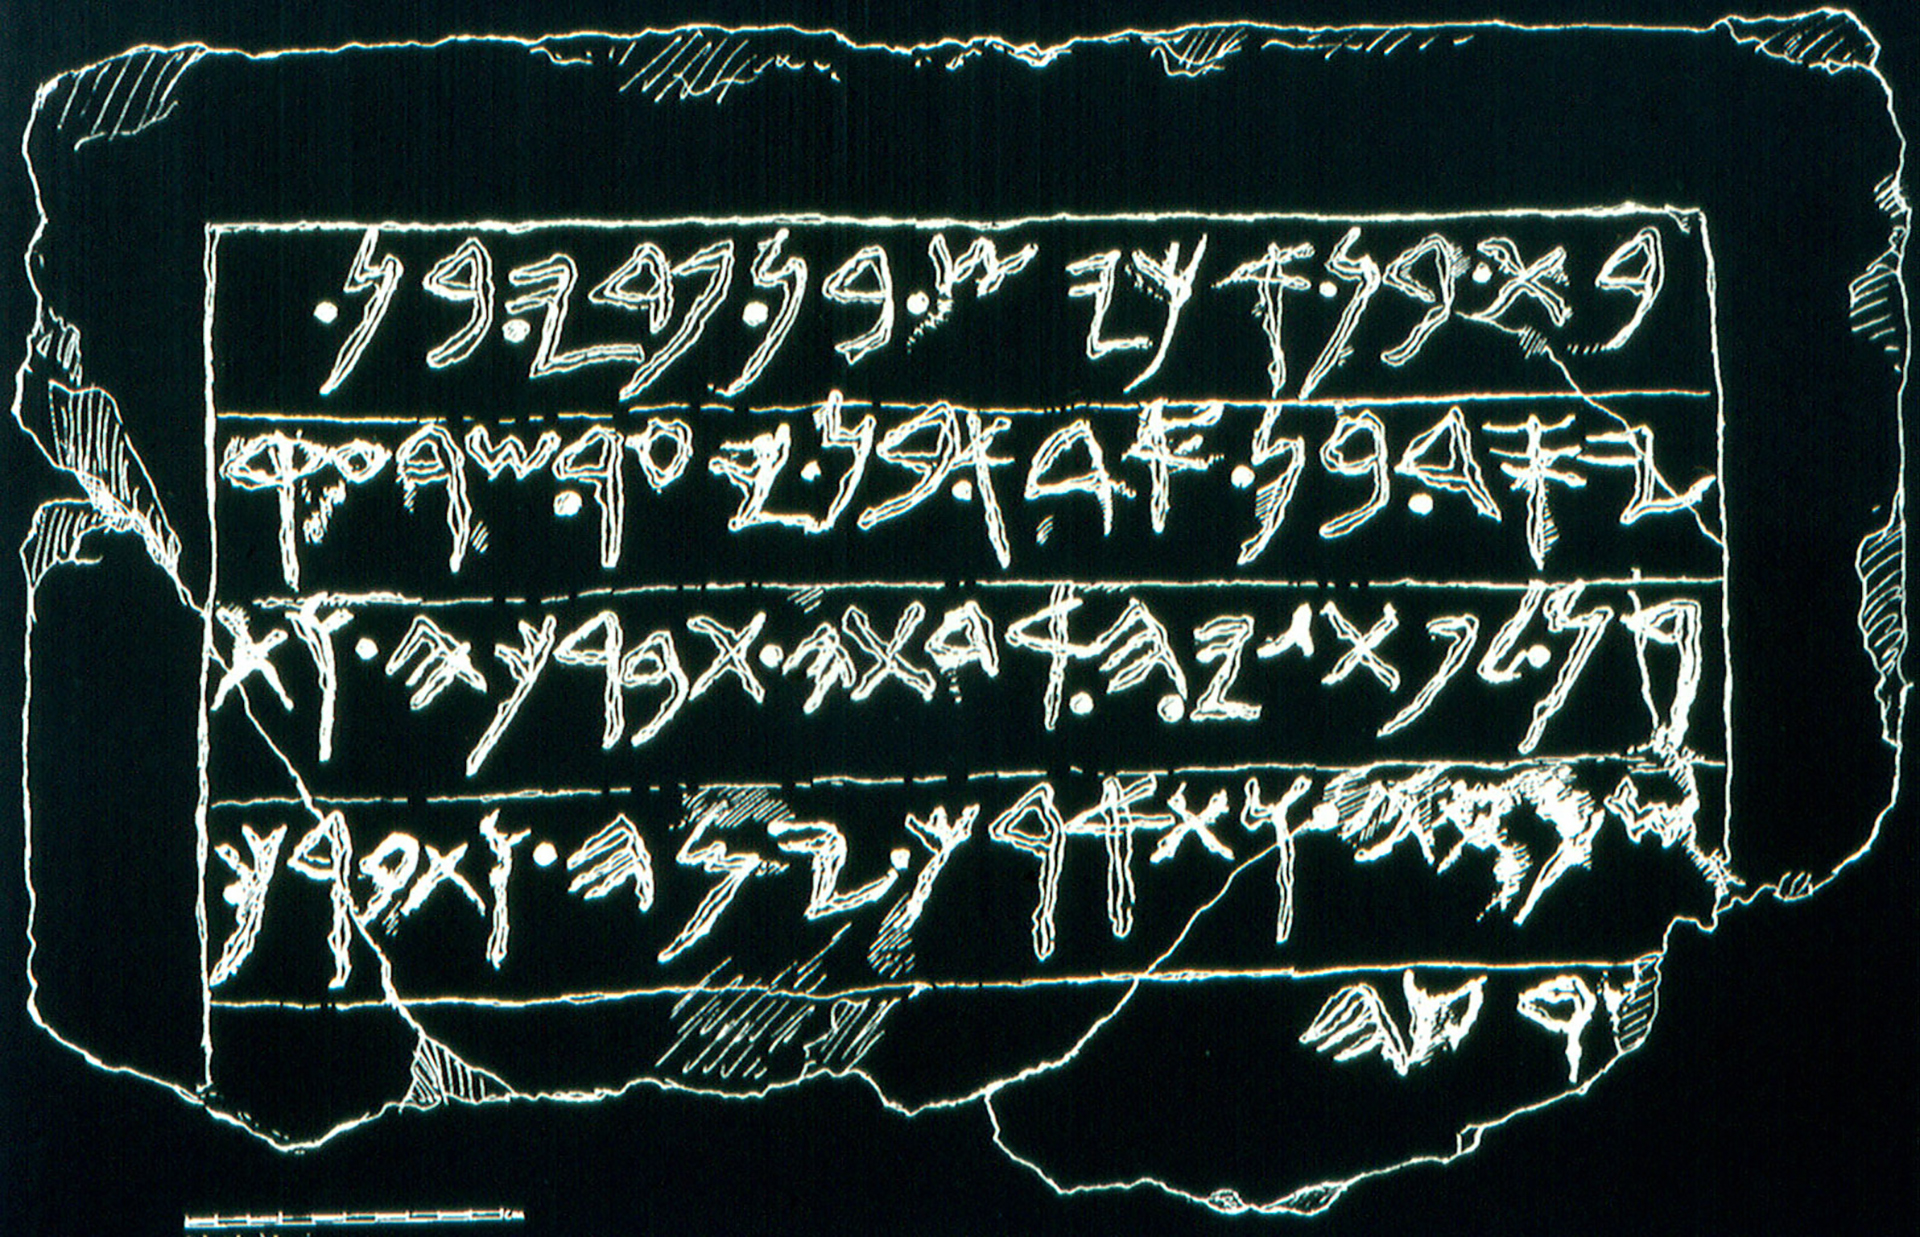 𐤁𐤕𐤟𐤁𐤍𐤟𐤀𐤊𐤉𐤔𐤟𐤁𐤍𐤟𐤐𐤃𐤉𐤟𐤁𐤍𐤟
𐤉𐤎𐤃𐤟𐤁𐤍𐤟𐤀𐤃𐤀𐤟𐤁𐤍𐤟𐤉𐤏𐤓𐤟𐤔𐤓𐤏𐤒
𐤓𐤍𐤟𐤋𐤐𐤕𐤂𐤉𐤄𐤟𐤀𐤃𐤕𐤄𐤟𐤕𐤁𐤓𐤊𐤄𐤟𐤅𐤕
𐤔𐤌𐤓𐤄𐤟𐤅𐤕𐤀𐤓𐤊𐤟𐤉𐤌𐤄𐤟𐤅𐤕𐤁𐤓𐤊𐤟
𐤓𐤑𐤄